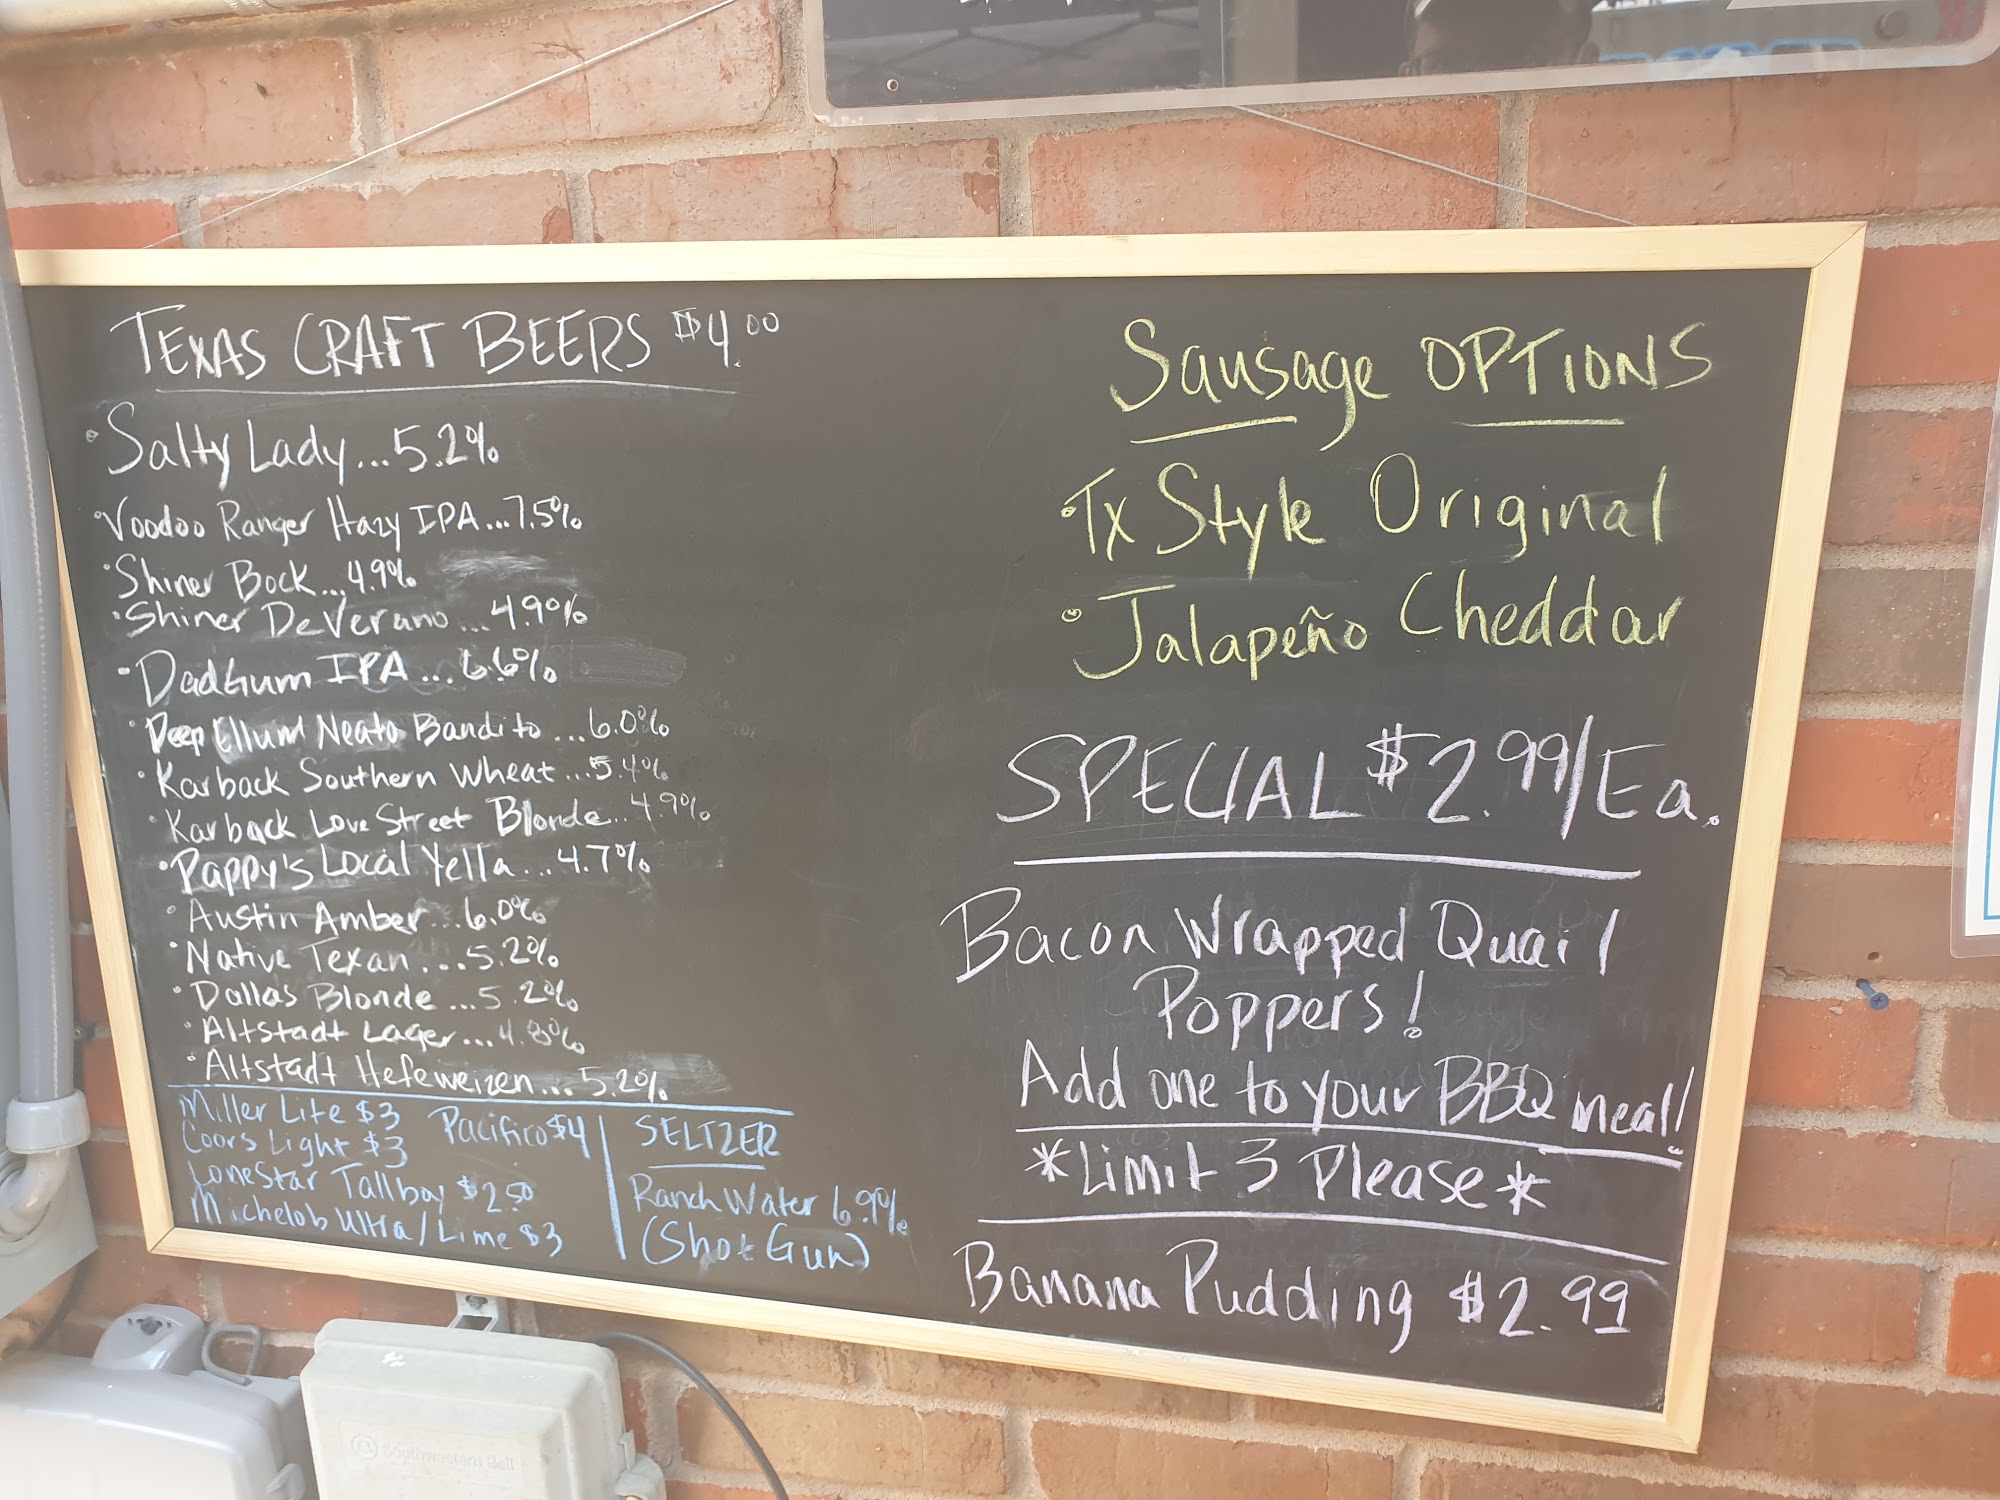 TEXAS CRAFT BEERS $4.00
• Salty Lady...5.2%
• Voodoo Ranger Hazy IPA...7.5%
• Shiner Bock...4.9%
• Shiner DeVerano...4.9%
• Dadgum IPA...6.6%
• Deep Ellum Neato Bandito...6.0%
• Karback Southern Wheat...5.4%
• Karback Love Street Blonde..4.9%
• Pappy's Local Yella...4.7%
• Austin Amber...6.0%
• Native Texan...5.2%
• Dallas Blonde...5.2%
• Altstadt Lager...4.8%
• Altstadt Hefeweizen...5.2%
Miller Lite $3 Pacifico $4
Coors Light $3
LoneStar Tallboy $2.50
Michelob Ultra/Lime $3
SELTZER
Ranch Water 6.9%
(Shot Gun)
Sausage OPTIONS
• Tx Style Original
• Jalapeño Cheddar
SPECIAL $2.99/Ea.
Bacon Wrapped Quail
Poppers!
Add one to your BBQ meal!
*Limit 3 Please*
Banana Pudding $2.99
Southwestern Bell